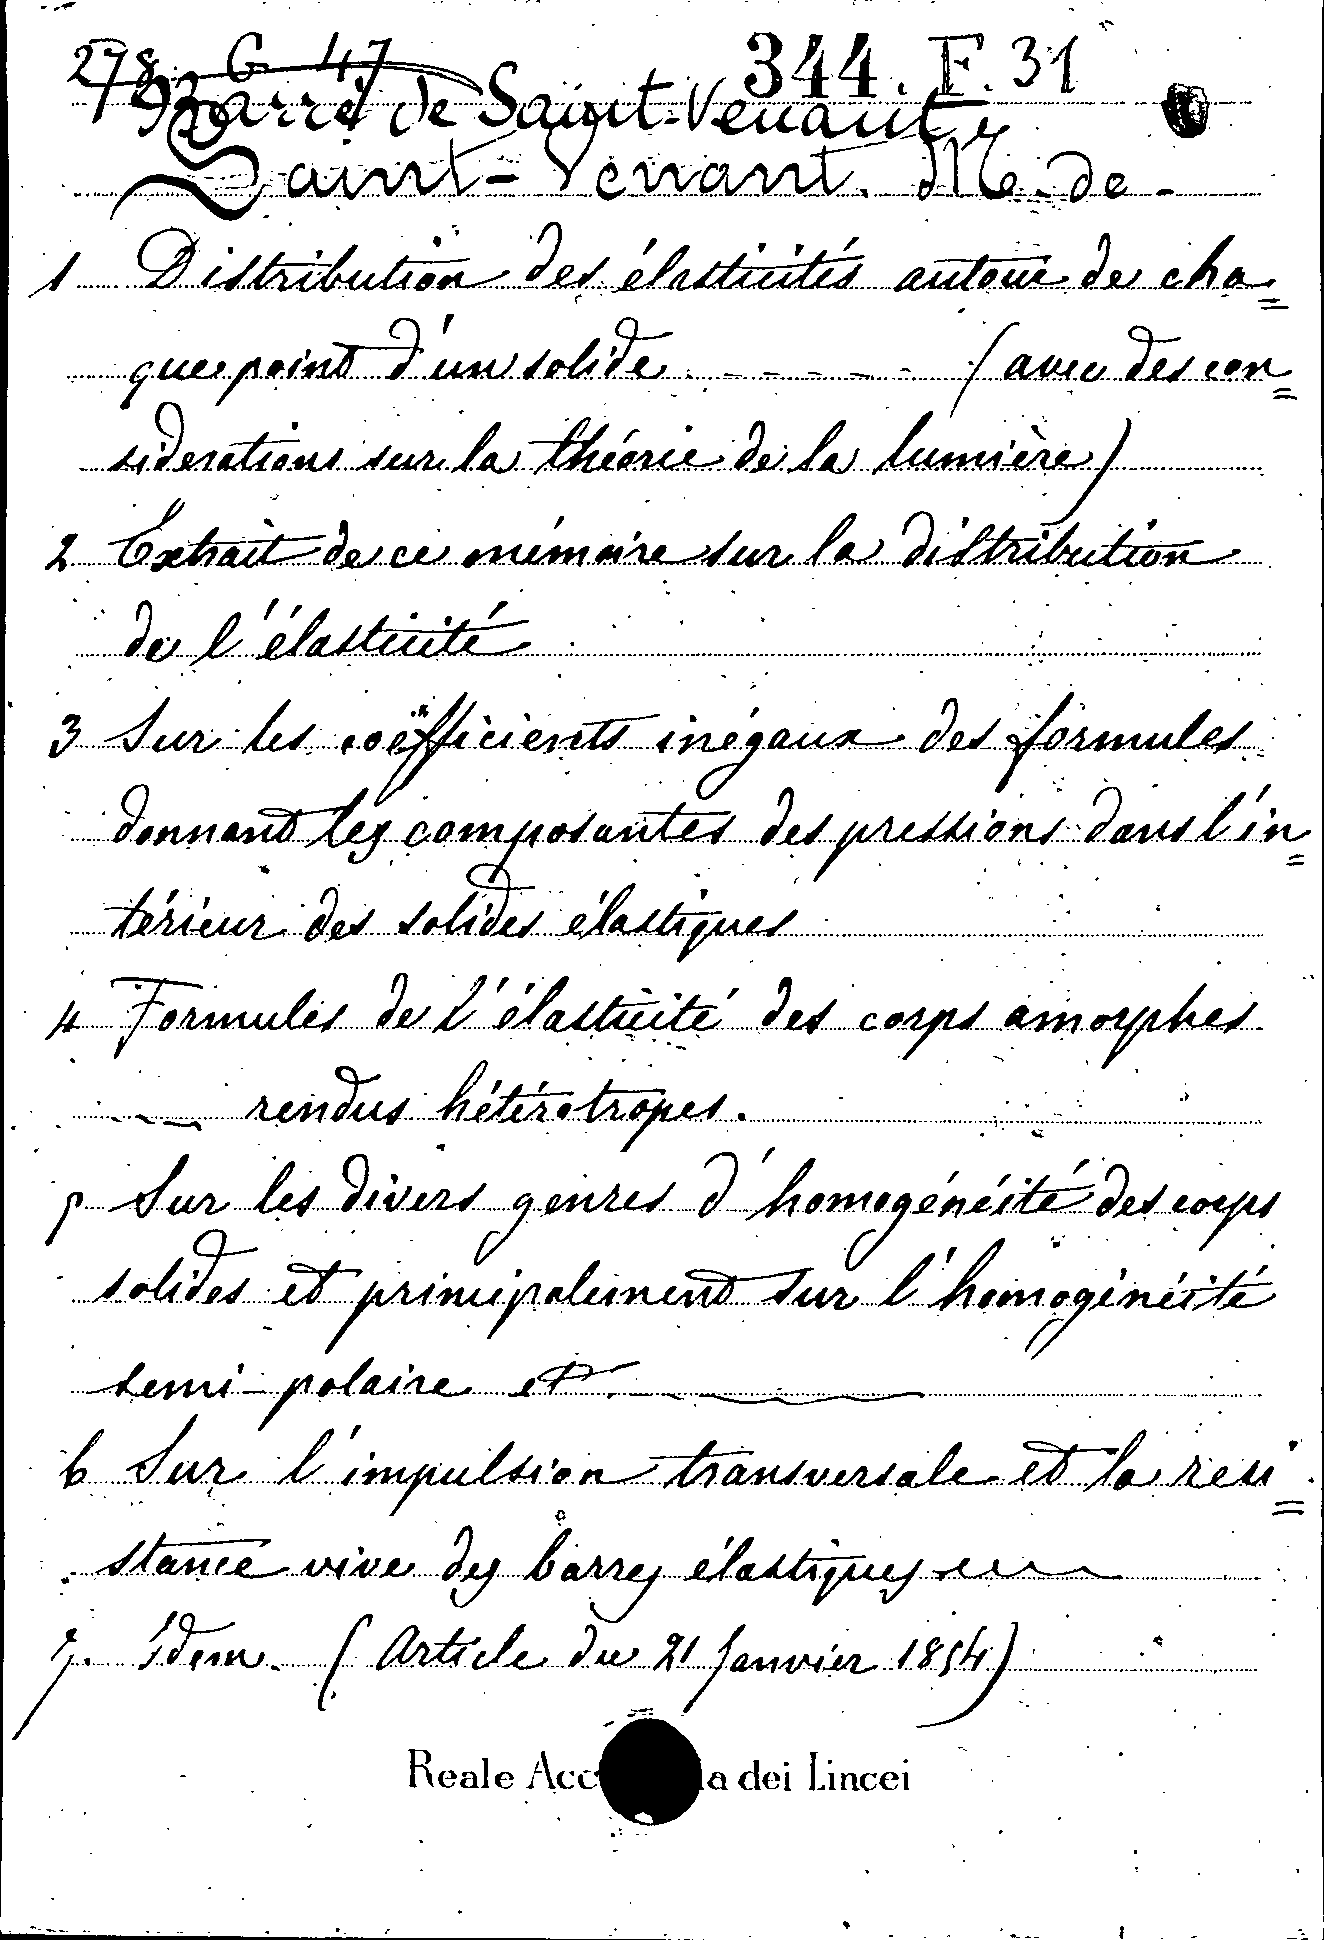 278 G 47 344. F. 31
Barré de Saint-Venant
Saint-Venant. M. de -
1 Distribution des élasticités autour de cha=
que point d'un solide - - - - - - (avec des con=
siderations sur la théorie de la lumière)
2 Extrait de ce mémoire sur la distribution
de l'élasticité
3 Sur les coëfficients inégaux des formules
donnant les composantes des pressions dans l'in=
térieur des solides élastiques
4 Formules de l'élasticité des corps amorphes
rendus hétérotropes.
5 Sur les divers genres d'homogénéité des corps
solides et principalement sur l'homogénéité
semi-polaire et
6 Sur l'impulsion transversale et la resi=
stance vive des barres élastiques
7. Idem. (Article du 21 Janvier 1854)
Reale Acc la dei Lincei